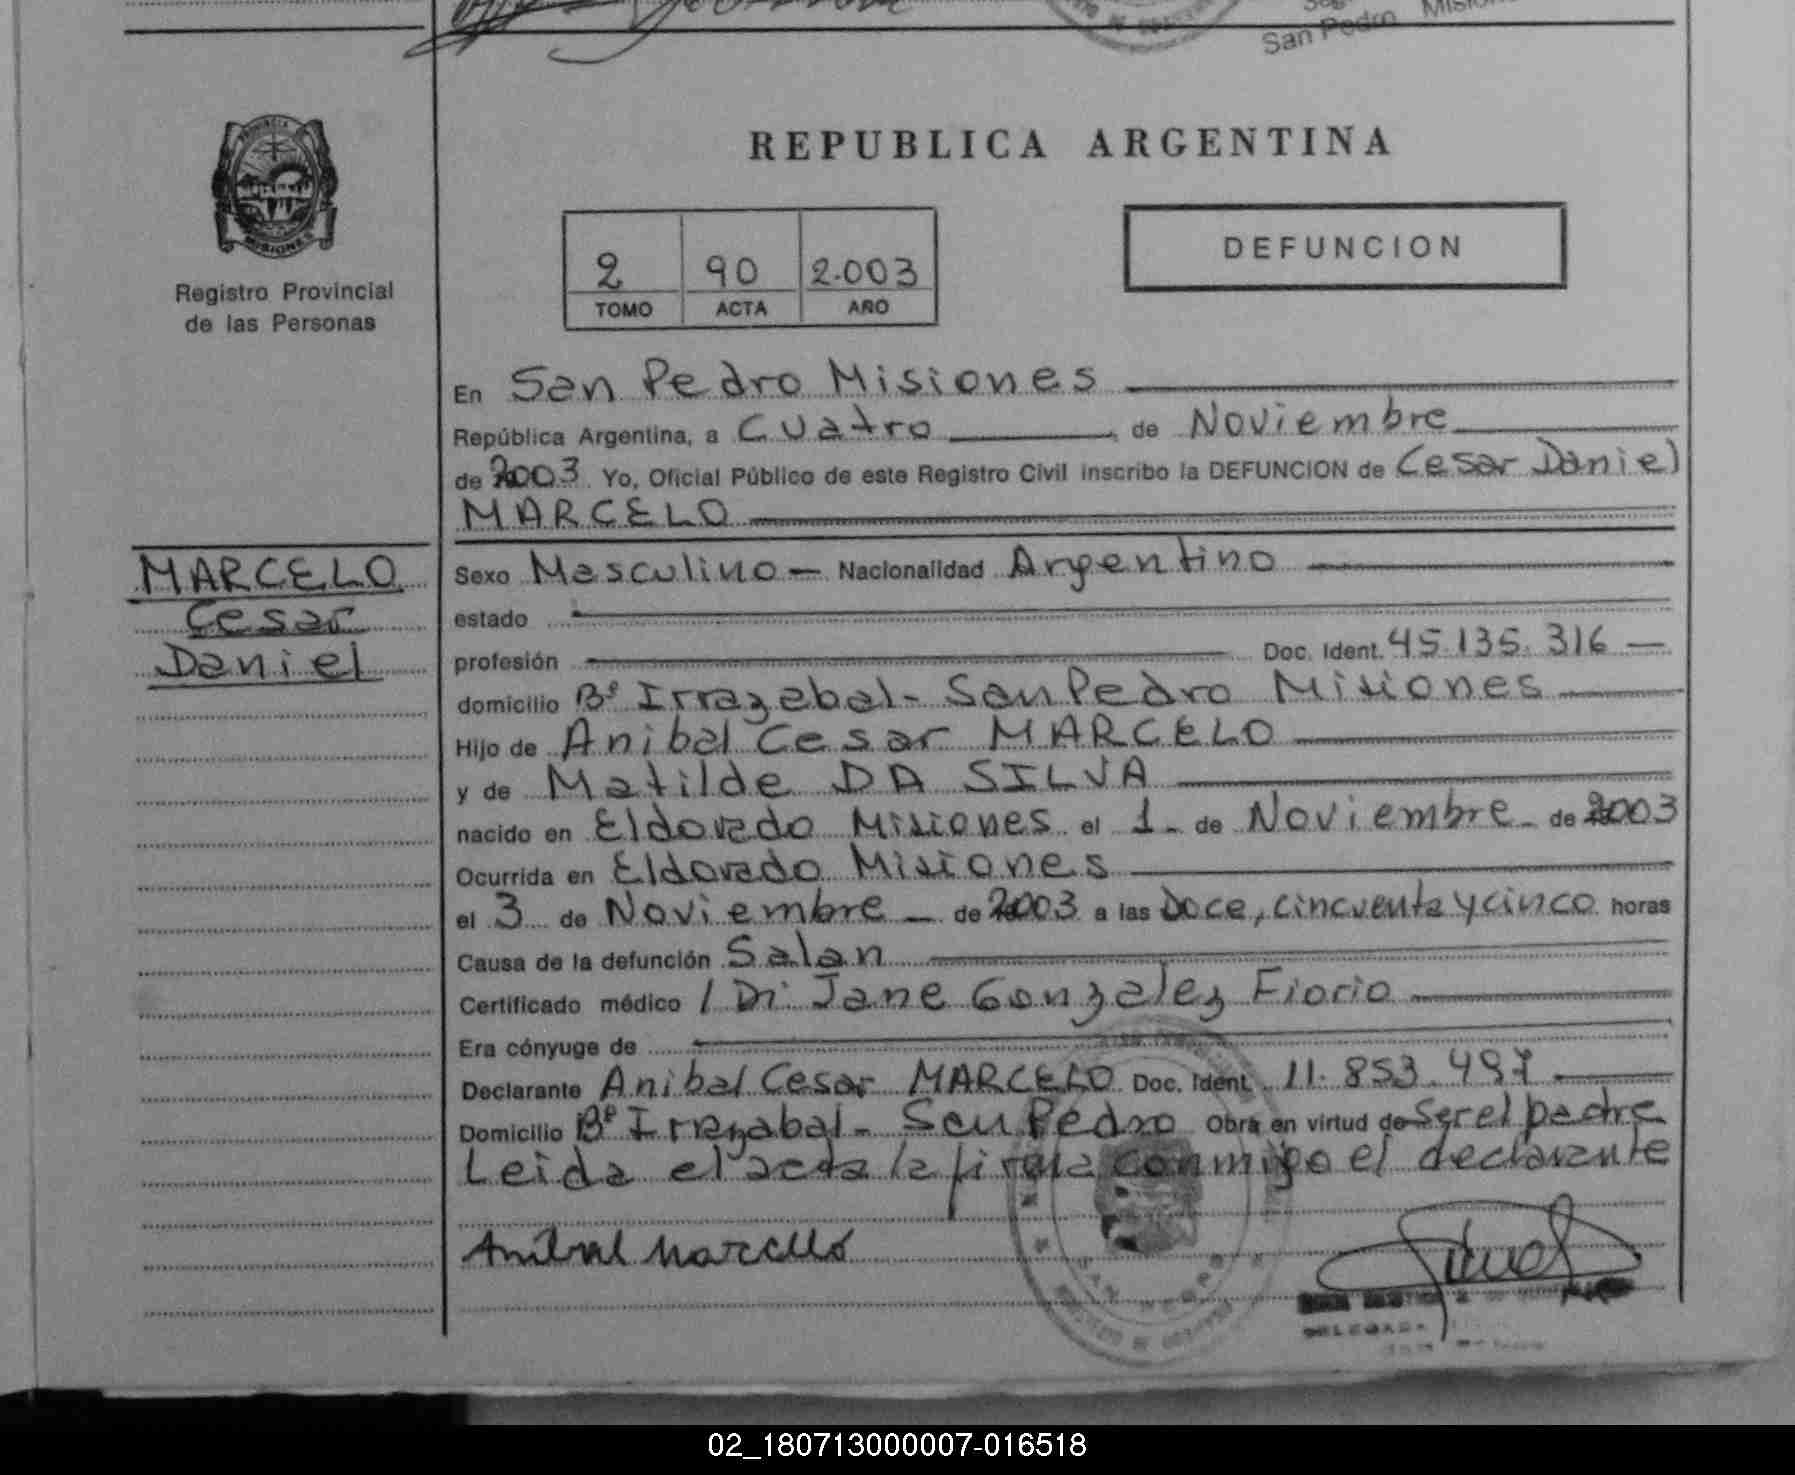 San Pedro Misiones
REPUBLICA ARGENTINA
PROVINCIA DE
MISIONES
Registro Provincial
de las Personas
DEFUNCION
2 90 2.003
TOMO ACTA AÑO
En San Pedro Misiones
República Argentina, a Cuatro, de Noviembre
de 2003 Yo, Oficial Público de este Registro Civil inscribo la DEFUNCION de Cesar Daniel
MARCELO
MARCELO
Cesar
Daniel
Sexo Masculino — Nacionalidad Argentino
estado
profesión Doc. Ident. 45.135.316 —
domicilio Bº Irrazabal - San Pedro Misiones
Hijo de Anibal Cesar MARCELO
y de Matilde DA SILVA
nacido en Eldorado Misiones el 1 - de Noviembre - de 2003
Ocurrida en Eldorado Misiones
el 3 de Noviembre — de 2003 a las Doce, cincuenta y cinco horas
Causa de la defunción Salan
Certificado médico / Di Jane Gonzalez Fiorio
Era cónyuge de
Declarante Anibal Cesar MARCELO Doc. Ident. 11.853.497
Domicilio Bº Irrazabal - San Pedro Obra en virtud de Ser el padre
Leida el acta la firma conmigo el declarante
Anibal Marcello
DELEGADA
02_180713000007-016518